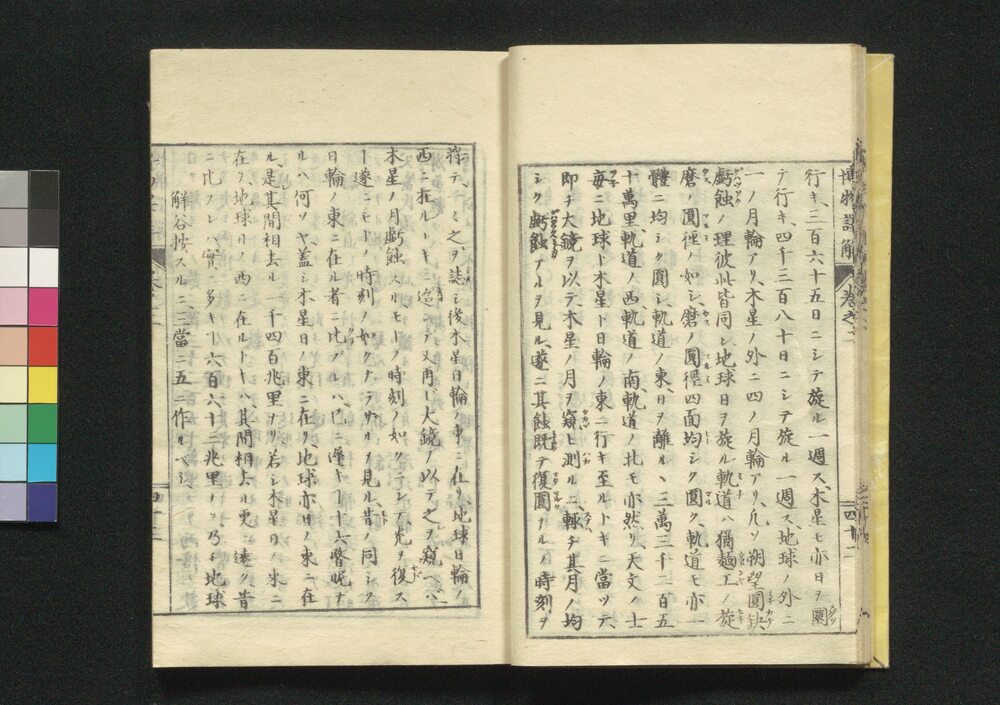 博物語解
巻之二
四十二
行キ、三百六十五日ニシテ旋ル一週ス、木星モ亦日ヲ圜
テ行キ、四千三百八十日ニシテ旋ル一週ス、地球ノ外ニ
一ノ月輪アリ、木星ノ外ニ四ノ月輪アリ、凡ソ朔望圓缺
虧蝕ノ理彼此皆同シ、地球日ヲ旋ル軌道ハ猶麺工ノ旋
磨ノ圓徑ノ如シ、磨ノ圓徑四面均シク圓ク、軌道モ亦一
體ニ均シク圓シ、軌道ノ東、日ヲ離ル丶、三萬三千二百五
十萬里、軌道ノ西軌道ノ南、軌道ノ北モ亦然リ、天文ノ士
毎ニ地球ト木星ト日輪ノ東ニ行キ至ルトキニ當ツテ、
即チ大鏡ヲ以テ木星ノ月ヲ窺ヒ測ルニ輙チ其月ノ均
シク虧蝕アルヲ見ル、遂ニ其蝕既テ復圓スルノ時刻ヲ
將テ、之ヲ誌シ後木星日輪ノ東ニ在リ、地球日輪ノ
西ニ在ルトキニ迨ンテ又再ヒ大鏡ヲ以テ之ヲ窺ヘバ
木星ノ月虧蝕スルモトノ時刻ノ如クニシテ、光ヲ復ス
ー遂ニモトノ時刻ノ如クナラザルヲ見ル、昔ノ同シク
日輪ノ東ニ在ル者ニ比ブレハ、已ニ遲キー十六畧眤ナ
ルハ何ソヤ、蓋シ木星日ノ東ニ在リ、地球亦日ノ東ニ在
ル、是其間相去ル一千四百兆里ナリ、若シ木星日ノ東ニ
在リ、地球日ノ西ニ在ルトキハ其間相去ル更ニ遠ク、昔
ニ比スレハ實ニ多キー六百六十二兆里ノ乃チ地球
解谷按スルニ、三當ニ五ニ作ルベシ